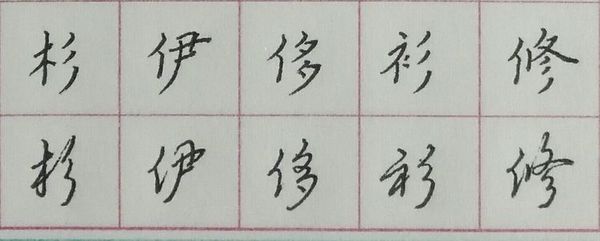 杉伊侈衫修
杉伊侈衫修